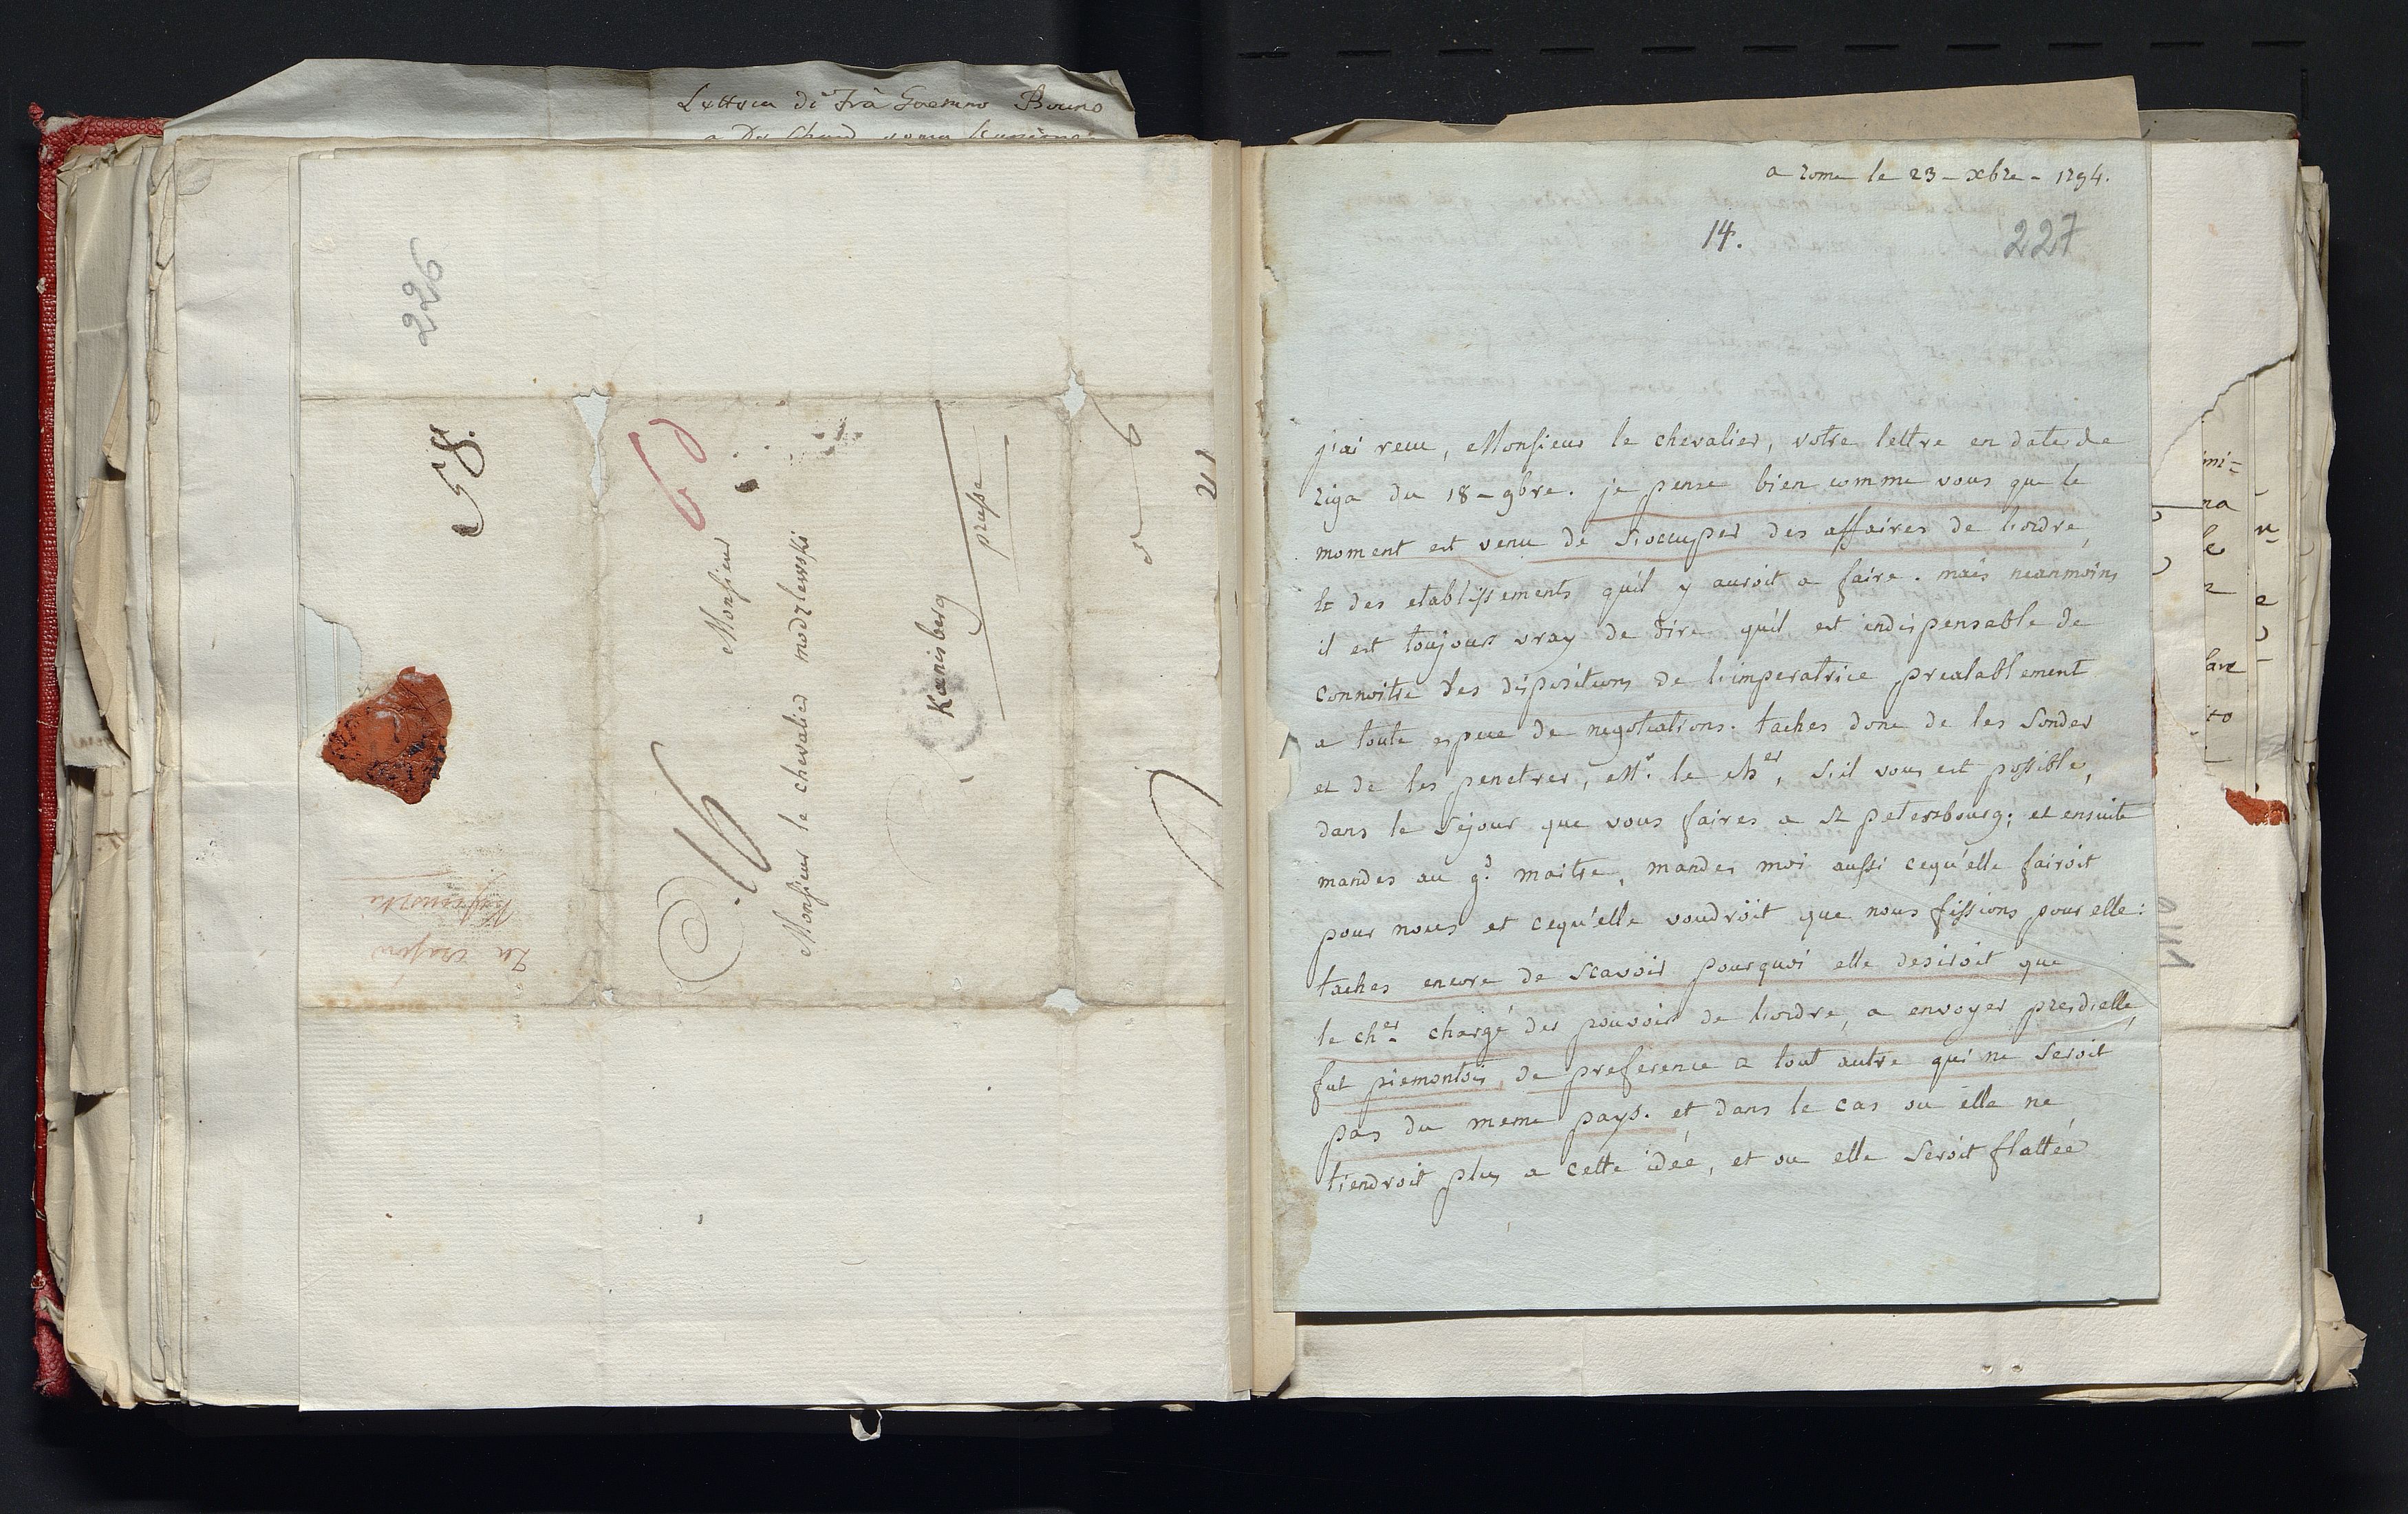 Lettera di Frà Gaetano Bruno
226
58.
6
Monsieur
Monsieur le chevalier modzlewski
Kœnisberg
prusse
a rome le 23 - xbre - 1794.
14.
227
j'ai reçu, Monsieur le chevalier, votre lettre en date de
riga du 18 - 9bre. je pense bien comme vous que le
moment est venu de s'occuper des affaires de l'ordre,
& des etablissements qu'il y auroit a faire. mais neanmoins
il est toujours vray de dire qu'il est indispensable de
connoitre les dispositions de l'imperatrice prealablement
a toute espece de negotiations. taches donc de les sonder
et de les penetrer, Mr. le cher, s'il vous est possible,
dans le sejour que vous faires a St petersbourg; et ensuite
mandes au gd. maitre, mandes moi aussi cequ'elle fairoit
pour nous et cequ'elle voudroit que nous fissions pour elle:
taches encore de scavoir pourquoi elle desiroit que
le cher chargé des pouvoirs de l'ordre, a envoyer presd'elle,
fut piemontois, de preference a tout autre qui ne seroit
pas du meme pays. et dans le cas ou elle ne
tiendroit plus a cette idée, et ou elle seroit flattée